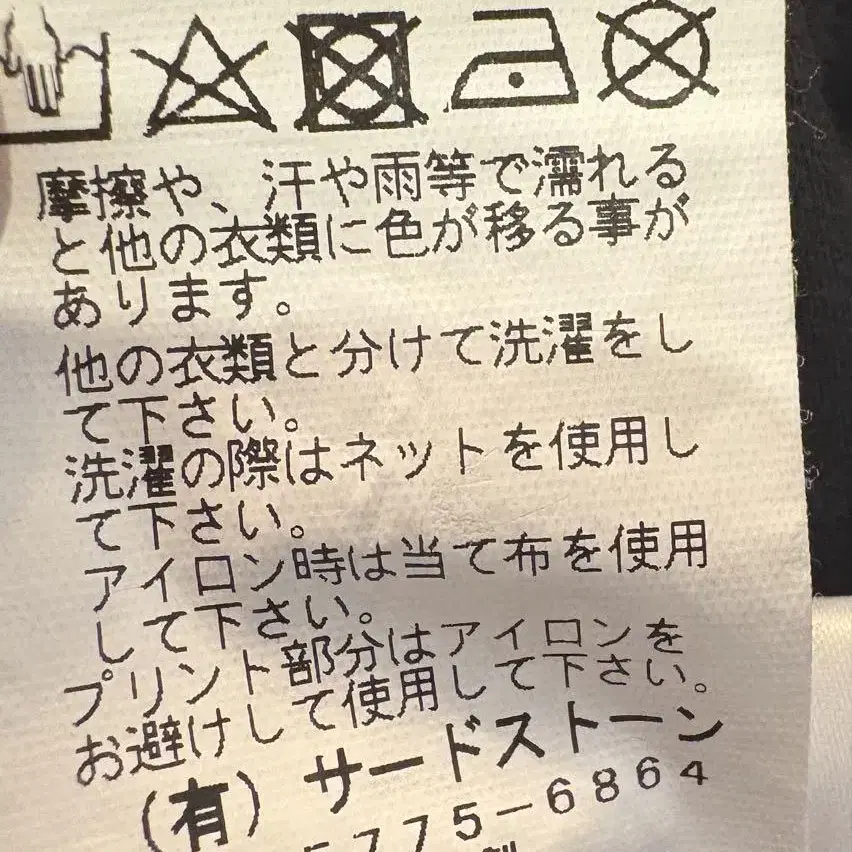 摩擦や、汗や雨等で濡れる
と他の衣類に色が移る事が
あります。
他の衣類と分けて洗濯をし
て下さい。
洗濯の際はネットを使用し
て下さい。
アイロン時は当て布を使用
して下さい。
プリント部分はアイロンを
お避けして使用して下さい。
(有) サードストーン
5775-6864